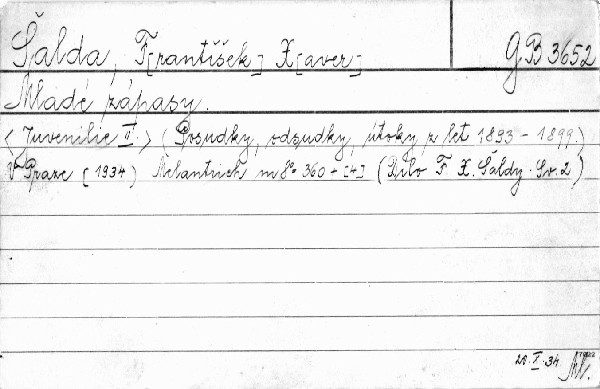 Šalda, F[rantíšek] X[aver] GB 3652
Mladé zápasy.
<Juvenilie II.> (Posudky, odsudky, útoky z let 1893 - 1899.)
V Praze (1934) Melantrich m 8° 360 + [4] (Dílo F. X. Šaldy. Sv. 2)
26.I.34.